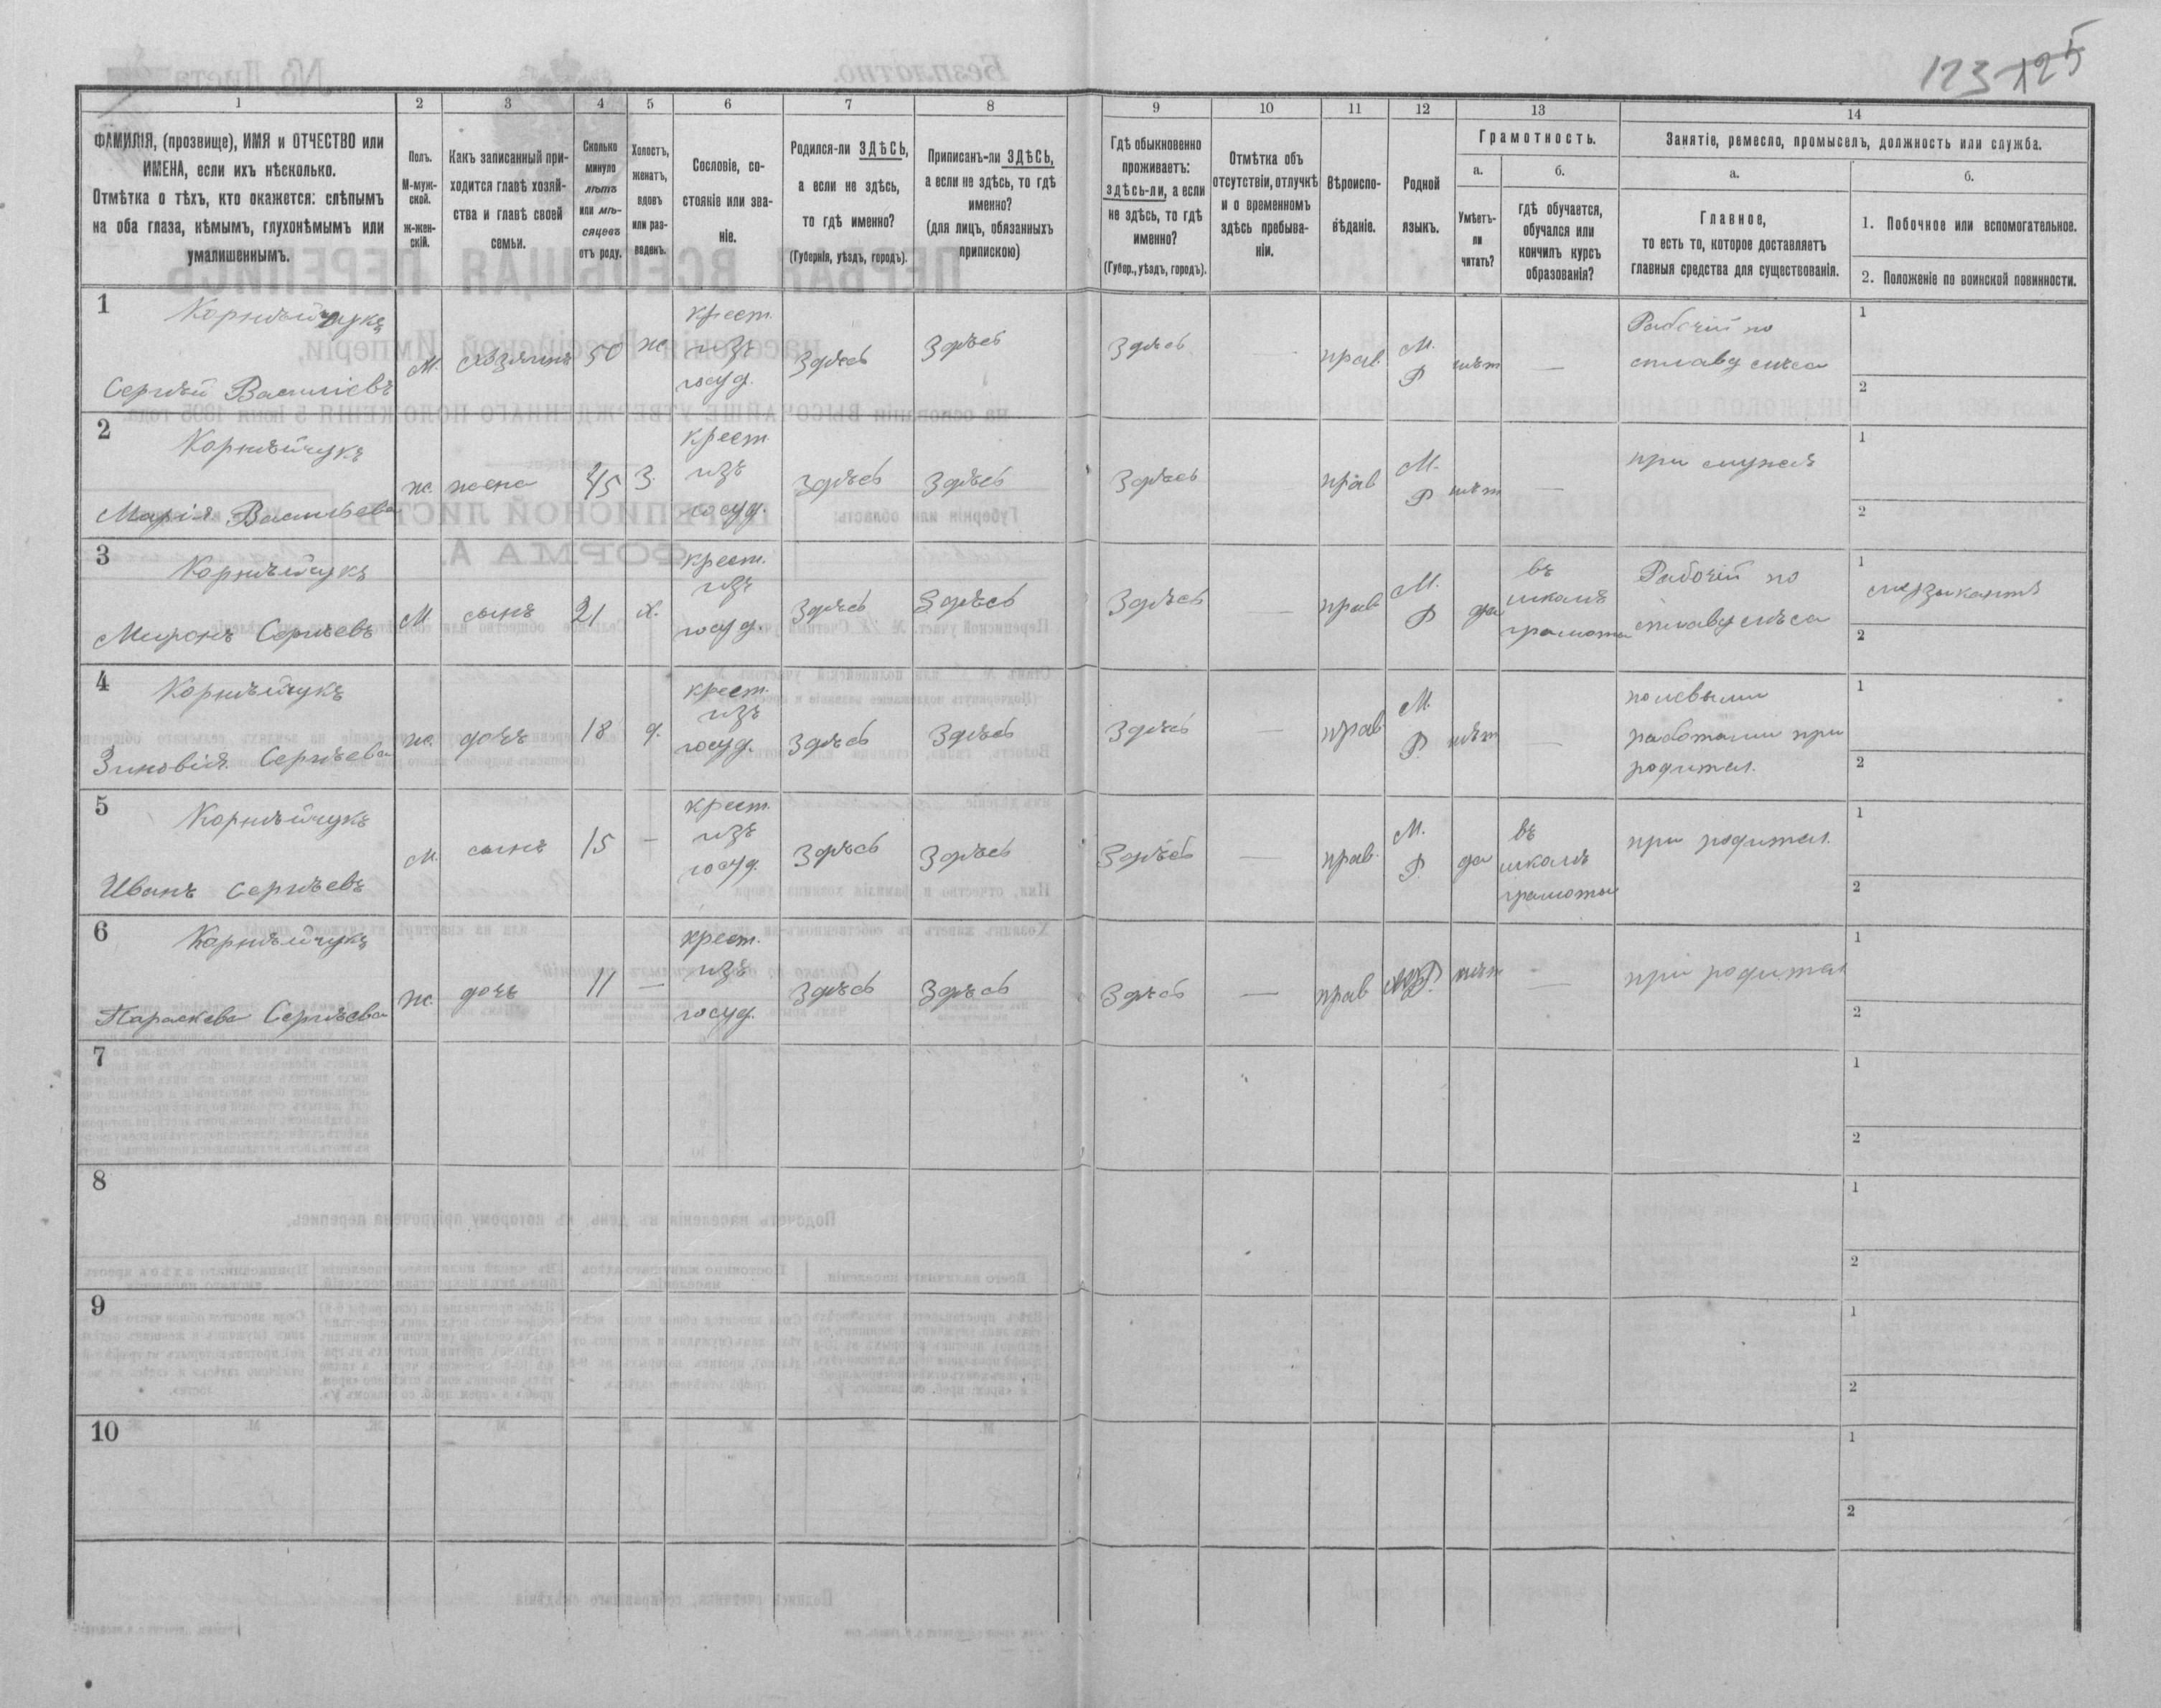 123-125
1 2 3 4 5 6 7 8 9 10 11 12 13 14
ФАМИЛІЯ, (прозвище), ИМЯ и ОТЧЕСТВО или
ИМЕНА, если ихъ нѣсколько.
Отмѣтка о тѣхъ, кто окажется: слѣпымъ
на оба глаза, нѣмымъ, глухонѣмымъ или
умалишеннымъ.
Полъ.
М-муж-
ской.
Ж-жен-
скій.
Какъ записанный при-
ходится главѣ хозяй-
ства и главѣ своей
семьи.
Сколько
минуло
лѣтъ
или мѣ-
сяцевъ
отъ роду.
Холостъ,
женатъ,
вдовъ
или раз-
веденъ.
Сословіе, со-
стояніе или зва-
ніе.
Родился-ли ЗДѢСЬ,
а если не здѣсь,
то гдѣ именно?
(Губернія, уѣздъ, городъ).
Приписанъ-ли ЗДѢСЬ,
а если не здѣсь, то гдѣ
именно?
(для лицъ, обязанныхъ
припискою)
Гдѣ обыкновенно
проживаетъ:
здѣсь-ли, а если
не здѣсь, то гдѣ
именно?
(Губер., уѣздъ, городъ).
Отмѣтка объ
отсутствіи, отлучкѣ
и о временномъ
здѣсь пребыва-
ніи.
Вѣроиспо-
вѣданіе.
Родной
языкъ.
Грамотность.
а.
Умѣетъ-
ли
читать?
б.
гдѣ обучается,
обучался или
кончилъ курсъ
образованія?
Занятіе, ремесло, промыселъ, должность или служба.
а.
Главное,
то есть то, которое доставляетъ
главныя средства для существованія.
б.
1. Побочное или вспомогательное.
2. Положеніе по воинской повинности.
1
Корнѣйчукъ
Сергѣй Василіевъ
м. хозяинъ 50 ж
крест.
изъ
госуд.
Здѣсь Здѣсь Здѣсь прав.
М.
Р
нѣт —
Рабочій по
сплаву лѣса
1
2
2
Корнѣйчукъ
Марія Васильева
ж. жена 45 З.
крест.
изъ
госуд.
Здѣсь Здѣсь Здѣсь прав
М.
Р
нѣт —
при мужѣ
1
2
3
Корнѣйчукъ
Миронъ Сергѣевъ
М сынъ 21 х.
крест.
изъ
госуд.
Здѣсь Здѣсь Здѣсь — прав
М.
Р
да
въ
школѣ
грамоты
Рабочій по
сплаву лѣса
1
музыкантъ
2
4
Корнѣйчукъ
Зиновія Сергѣева
ж. дочь 18 д.
крест.
изъ
госуд.
Здѣсь Здѣсь Здѣсь — прав
М.
Р.
нѣт —
полевыми
работами при
родител.
1
2
5
Корнѣйчукъ
Иванъ Сергѣевъ
м. сынъ 15 —
крест.
изъ
госуд.
Здѣсь Здѣсь Здѣсь — прав.
М.
Р.
да
въ
школѣ
грамоты
при родител.
1
2
6
Корнѣйчукъ
Параскева Сергѣева
ж. дочь 11 —
крест.
изъ
госуд.
Здѣсь Здѣсь Здѣсь — прав М.Р. нѣт —
при родител
1
2
7
1
2
8
1
2
9
1
2
10
1
2